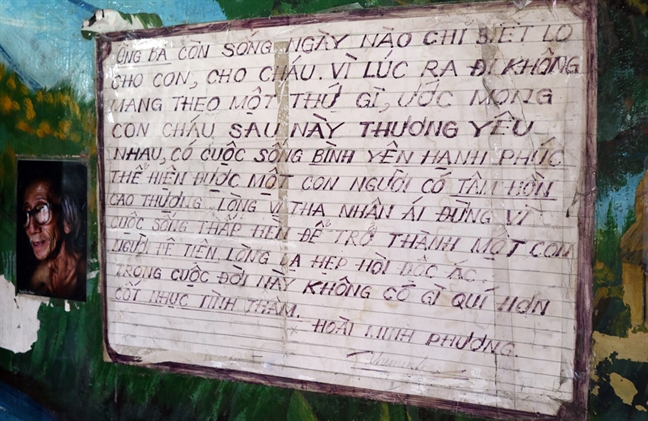 ÔNG BÀ CÒN SỐNG NGÀY NÀO CHỈ BIẾT LO
CHO CON, CHO CHÁU. VÌ LÚC RA ĐI KHÔNG
MANG THEO MỘT THỨ GÌ, ƯỚC MONG
CON CHÁU SAU NÀY THƯƠNG YÊU
NHAU, CÓ CUỘC SỐNG BÌNH YÊN HẠNH PHÚC
THỂ HIỆN ĐƯỢC MỘT CON NGƯỜI CÓ TÂM HỒN
CAO THƯỢNG. LÒNG VỊ THA NHÂN ÁI ĐỪNG VÌ
CUỘC SỐNG THẤP HÈN ĐỂ TRỞ THÀNH MỘT CON
NGƯỜI TÊ TIỆN, LÒNG DẠ HẸP HÒI ĐỘC ÁC.
TRONG CUỘC ĐỜI NÀY KHÔNG CÓ GÌ QUÍ HƠN
CỐT NHỤC TÌNH THÂM.
HOÀI MINH PHƯƠNG.